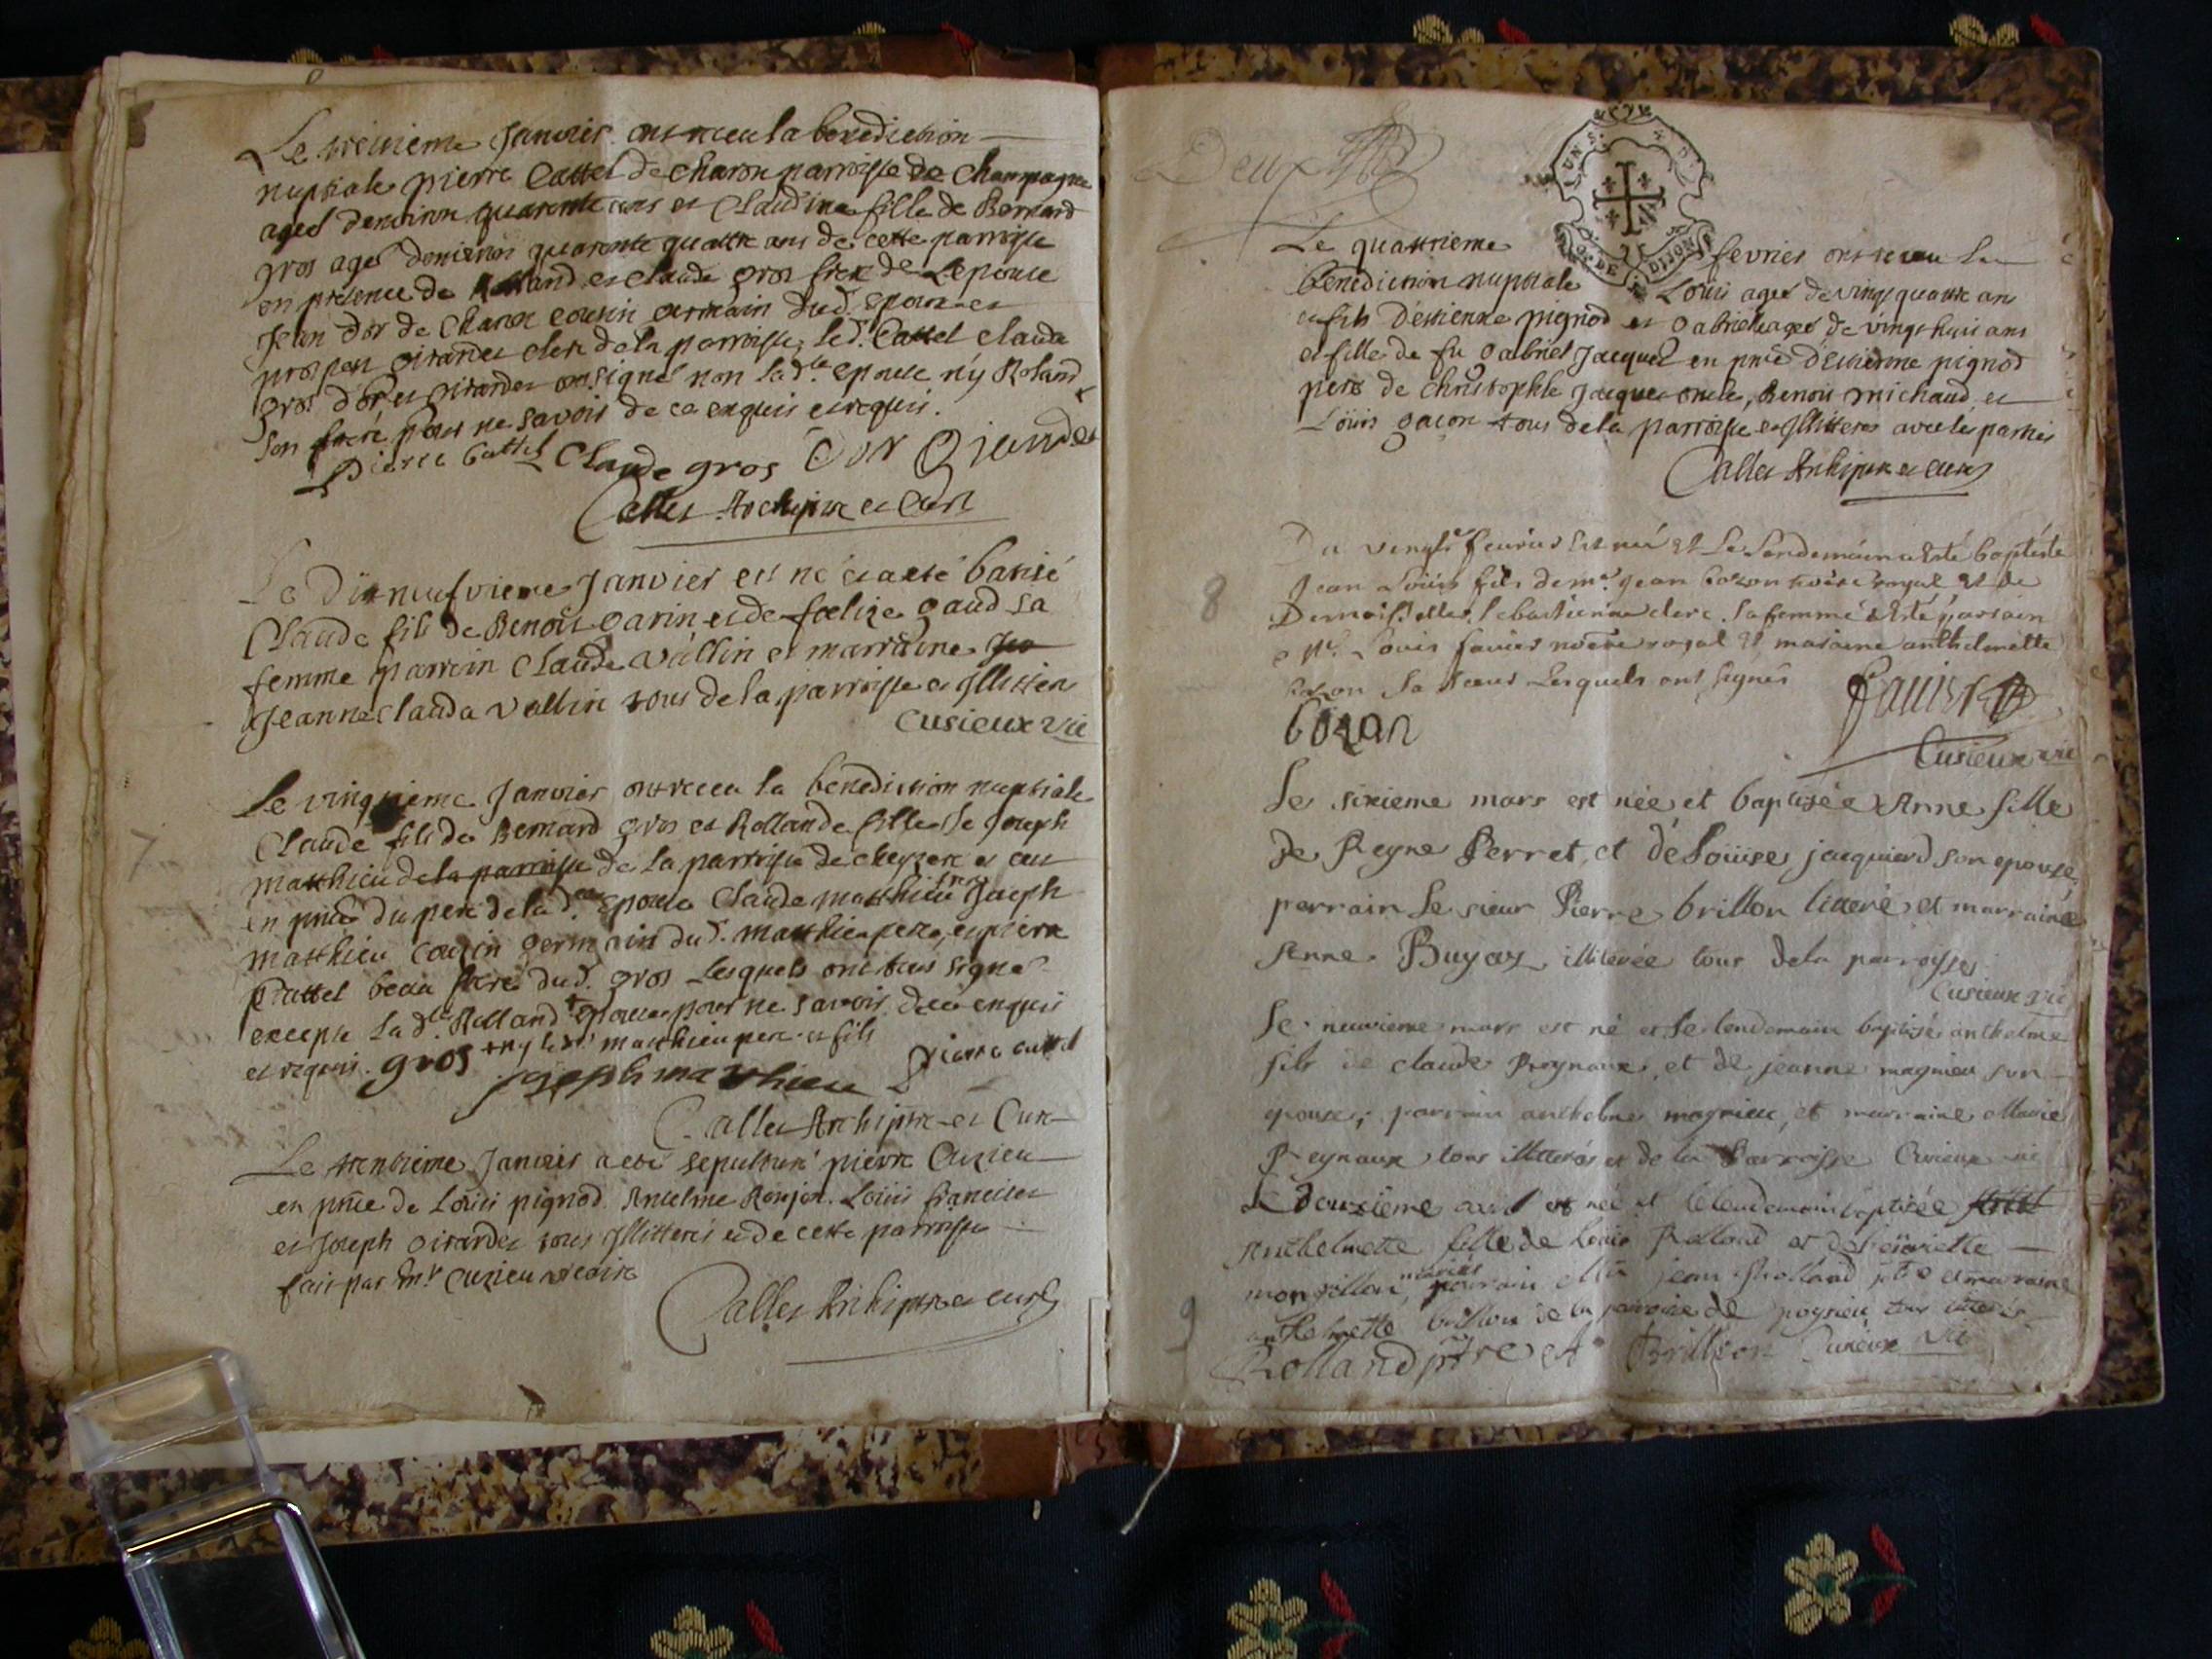 Le treisieme Janvier ont receu la benediction
nuptiale pierre Cattel de Charon parroisse de Champagne
agés d'environ quarente ans et Claudine fille de Bernard
gros agés denviron quarente quattre ans de cette parroisse
en presence de Rolland et Claude gros frere de Lepouse
Jean D'or de Charon cousin germain dud. epoux et
girardet clerc de la parroisse, led. Cattel claude
gros d'or et girardet ont signés non lad.te epouse n'y Roland
son frere pour ne savoir de ce enquis et requis.
Pierre Cattel Claude gros Dor Girardet
Callet Archiptre et Curé
Le Dixneufvieme Janvier est né et a eté batisé
Claude fils de Benoit garin et de foelize gaud sa
femme parrein Claude Vallin et marraine
Jeanne claude Vallin tous de la parroisse et Illitters
Cusieux vic
7
Le vingtieme Janvier ont receu la benediction nuptiale
Claude fils de Bernard gros et Rollande fille de Joseph
matthieu de la parroisse de la parroisse de cheyzere et ce
en pnce du pere de lad. epouse Claude matthieu frere Joseph
matthieu couzin germain dud. matthieu pere, et pierre
Cattel beau frere dud. gros Lesquels ont tous signé
excepté lad.te Rolland epouse pour ne savoir de ce enquis
et requis. gros +ny led. matthieu pere et fils
joseph matthieu pierre cattel
Callet Archiptre et Curé
Le trentieme Janvier a eté sepulturé pierre Cuzieu
en pnce de Loüis pignod Anselme Ronjon Loüis francillet
et Joseph Girardet tous Illitterés et de cette parroisse
fait par mr Cuzieu vicaire
Callet Archiptre et curé
Deux
UN S. 4 D.
G. DE DIJON
Le quattrieme fevrier ont receu la
benediction nuptiale Loüis agés de vingt quattre ans
fils D'estienne pignod et Gabrielle agés de vingt huit ans
et fille de fu gabriel Jacquet en pnce d'estienne pignod
pere de christophle Jacquet oncle, Benoit michaud et
Loüis gaçon tous de la parroisse et Illitteres avec les parties
Callet Archiptre et curé
8
Du vingt fevrier est né et Le Lendemain a esté baptisté
Jean Loüis fils de me. Jean Bozon notere royal et de
Demoiselle sebastienne clerc sa femme a esté parrain
me. Louis favier notere royal et maraine anthelmette
Bozon sa soeur Lesquels ont signés
Bozon Favier
Cusieux vic
Le sixieme mars est née et baptisée Anne fille
de Reyne Perret, et de Loüise jacquierd son epouse,
parrain Le sieur Pierre brillon litteré et marraine
Anne Bugay illiterée tous dela parroysse
Cusieux vic
Le neuvieme mars est né et le lendemain baptisé anthelme
fils de claude Reynaux, et de jeanne magnieu son
epouse; parrain anthelme magnieu, et marraine Marie
Reynaux tous illitterés et de la Parroisse Cusieux vic
9
Le douzieme avril est née et le lendemain baptisée
Anthelmette fille de Louis Rolland et de
parrain jean Rolland ptre et maraine
anthelmette brillon de la parroisse de pogrieu tous litterés
Rolland ptre A Brillion Cusieux vic